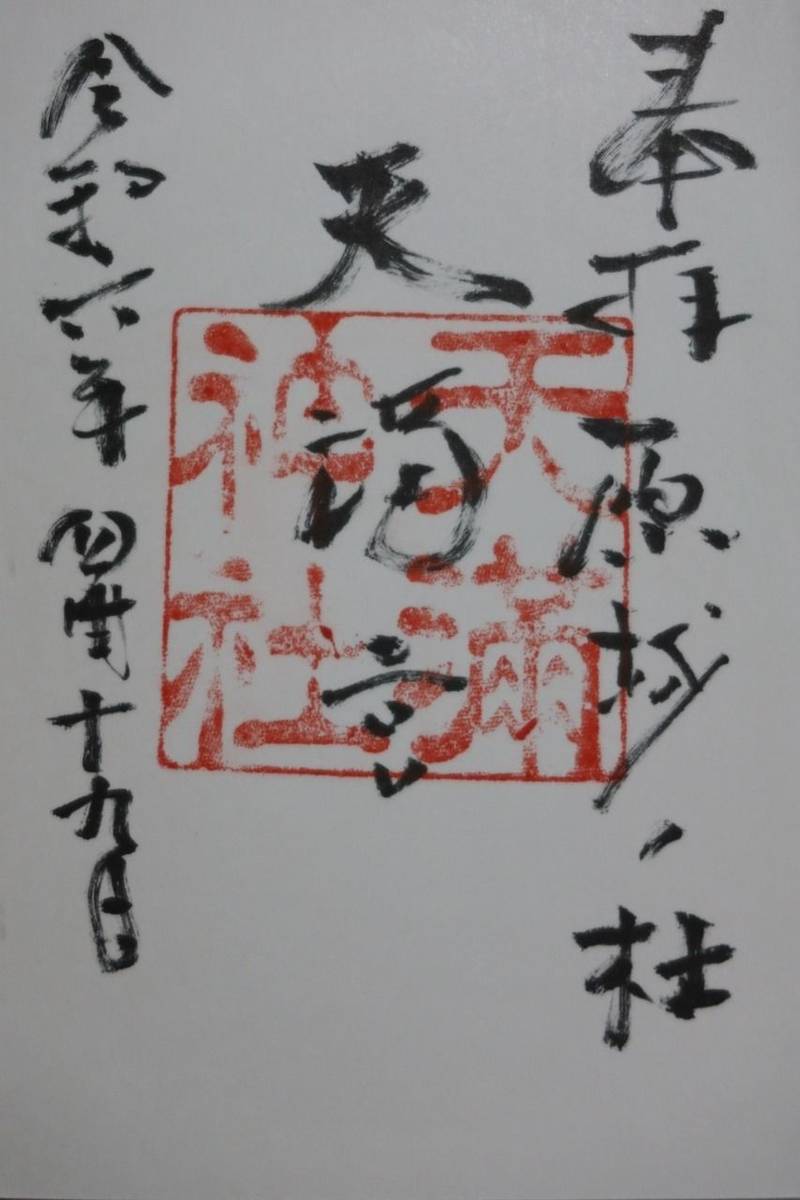 奉拝 原杉ノ杜
天満宮
天滿
神社
令和六年 四月十九日